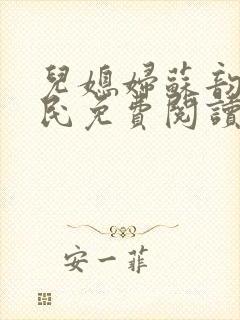 兒媳婦蘇韵
民免費閱讀
安一菲